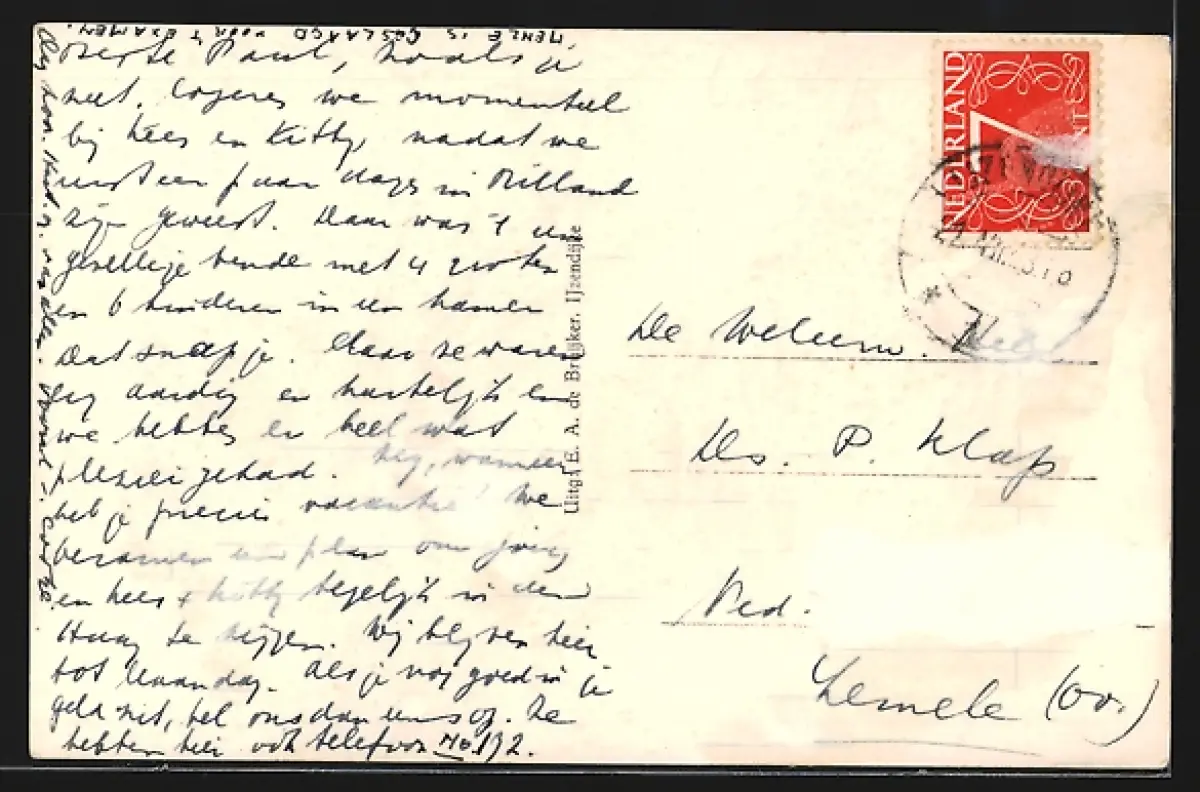 MENZE IS GESLAAGD VOOR 'T EXAMEN.
Beste Paul, zoals je
ziet, logeren we momenteel
bij Kees en Kitty, nadat we
eerst een paar dagen in Rilland
zijn geweest. Daar was 't een
gezellige bende met 4 groten
en 6 kinderen in een kamer
dat snap je. Maar ze waren
erg aardig en hartelijk en
we hebben er heel wat
plezier gehad. Zeg, wanneer
heb je precies vacantie? We
beramen een plan om jou
en Kees + Kitty tegelijk in den
Haag te krijgen. Wij blijven hier
tot Maandag. Als je nog goed in je
geld zit, bel ons dan eens op. Ze
hebben hier ook telefoon No 192.
Uitg. E. A. de Bruijker, IJzendijke
NEDERLAND
7
CENT
De Weleerw. Heer
Ds. P. Klap
Pred.
Lemele (Ov.)